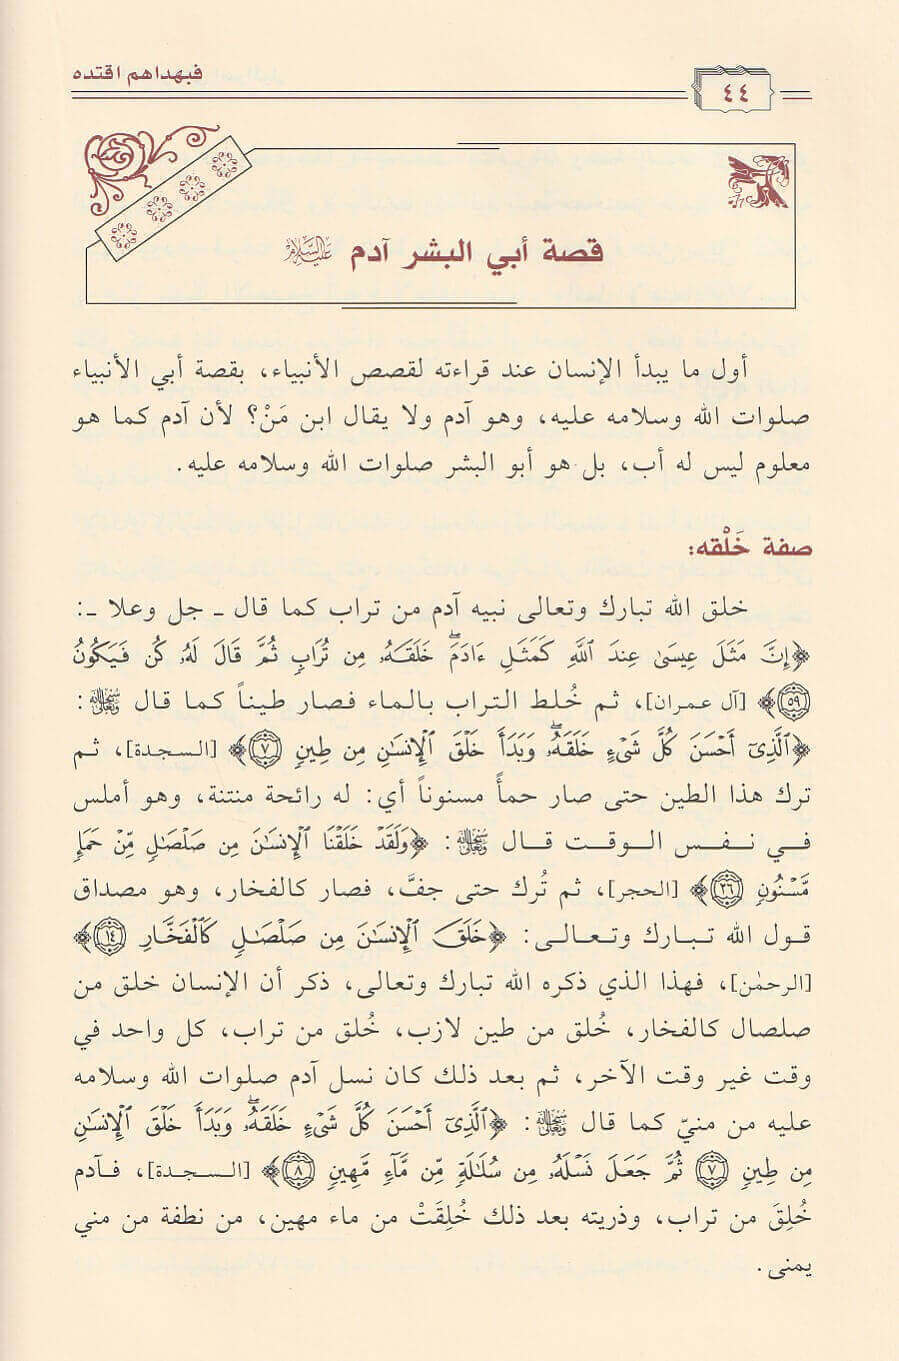 ٤٤
فبهداهم اقتده
قصة أبي البشر آدم عليه السلام
أول ما يبدأ الإنسان عند قراءته لقصص الأنبياء، بقصة أبي الأنبياء
صلوات الله وسلامه عليه، وهو آدم ولا يقال ابن مَنْ؟ لأن آدم كما هو
معلوم ليس له أب، بل هو أبو البشر صلوات الله وسلامه عليه.
صفة خَلْقه:
خلق الله تبارك وتعالى نبيه آدم من تراب كما قال ـ جل وعلا ـ:
﴿إِنَّ مَثَلَ عِيسَىٰ عِندَ ٱللَّهِ كَمَثَلِ ءَادَمَۖ خَلَقَهُۥ مِن تُرَابٍ ثُمَّ قَالَ لَهُۥ كُن فَيَكُونُ
٥٩﴾ [آل عمران]، ثم خُلط التراب بالماء فصار طيناً كما قال سبحانه وتعالى:
﴿ٱلَّذِىٓ أَحْسَنَ كُلَّ شَىْءٍ خَلَقَهُۥۖ وَبَدَأَ خَلْقَ ٱلْإِنسَٰنِ مِن طِينٍ ٧﴾ [السجدة]، ثم
ترك هذا الطين حتى صار حمأً مسنوناً أي: له رائحة منتنة، وهو أملس
في نفس الوقت قال سبحانه وتعالى: ﴿وَلَقَدْ خَلَقْنَا ٱلْإِنسَٰنَ مِن صَلْصَٰلٍ مِّنْ حَمَإٍ
مَّسْنُونٍ ٢٦﴾ [الحجر]، ثم تُرك حتى جفَّ، فصار كالفخار، وهو مصداق
قول الله تبارك وتعالى: ﴿خَلَقَ ٱلْإِنسَٰنَ مِن صَلْصَٰلٍ كَٱلْفَخَّارِ ١٤﴾
[الرحمٰن]، فهذا الذي ذكره الله تبارك وتعالى، ذكر أن الإنسان خلق من
صلصال كالفخار، خُلق من طين لازب، خُلق من تراب، كل واحد في
وقت غير وقت الآخر، ثم بعد ذلك كان نسل آدم صلوات الله وسلامه
عليه من منيّ كما قال سبحانه وتعالى: ﴿ٱلَّذِىٓ أَحْسَنَ كُلَّ شَىْءٍ خَلَقَهُۥۖ وَبَدَأَ خَلْقَ ٱلْإِنسَٰنِ
مِن طِينٍ ٧ ثُمَّ جَعَلَ نَسْلَهُۥ مِن سُلَٰلَةٍ مِّن مَّآءٍ مَّهِينٍ ٨﴾ [السجدة]، فآدم
خُلِقَ من تراب، وذريته بعد ذلك خُلِقَتْ من ماء مهين، من نطفة من مني
يمنى.